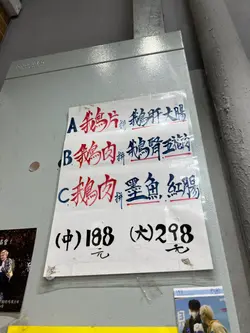 A 鵝片拼鵝肝大腸
B 鵝肉拼鵝腎
C 鵝肉拼墨魚.紅腸
(中)188元 (大)298元